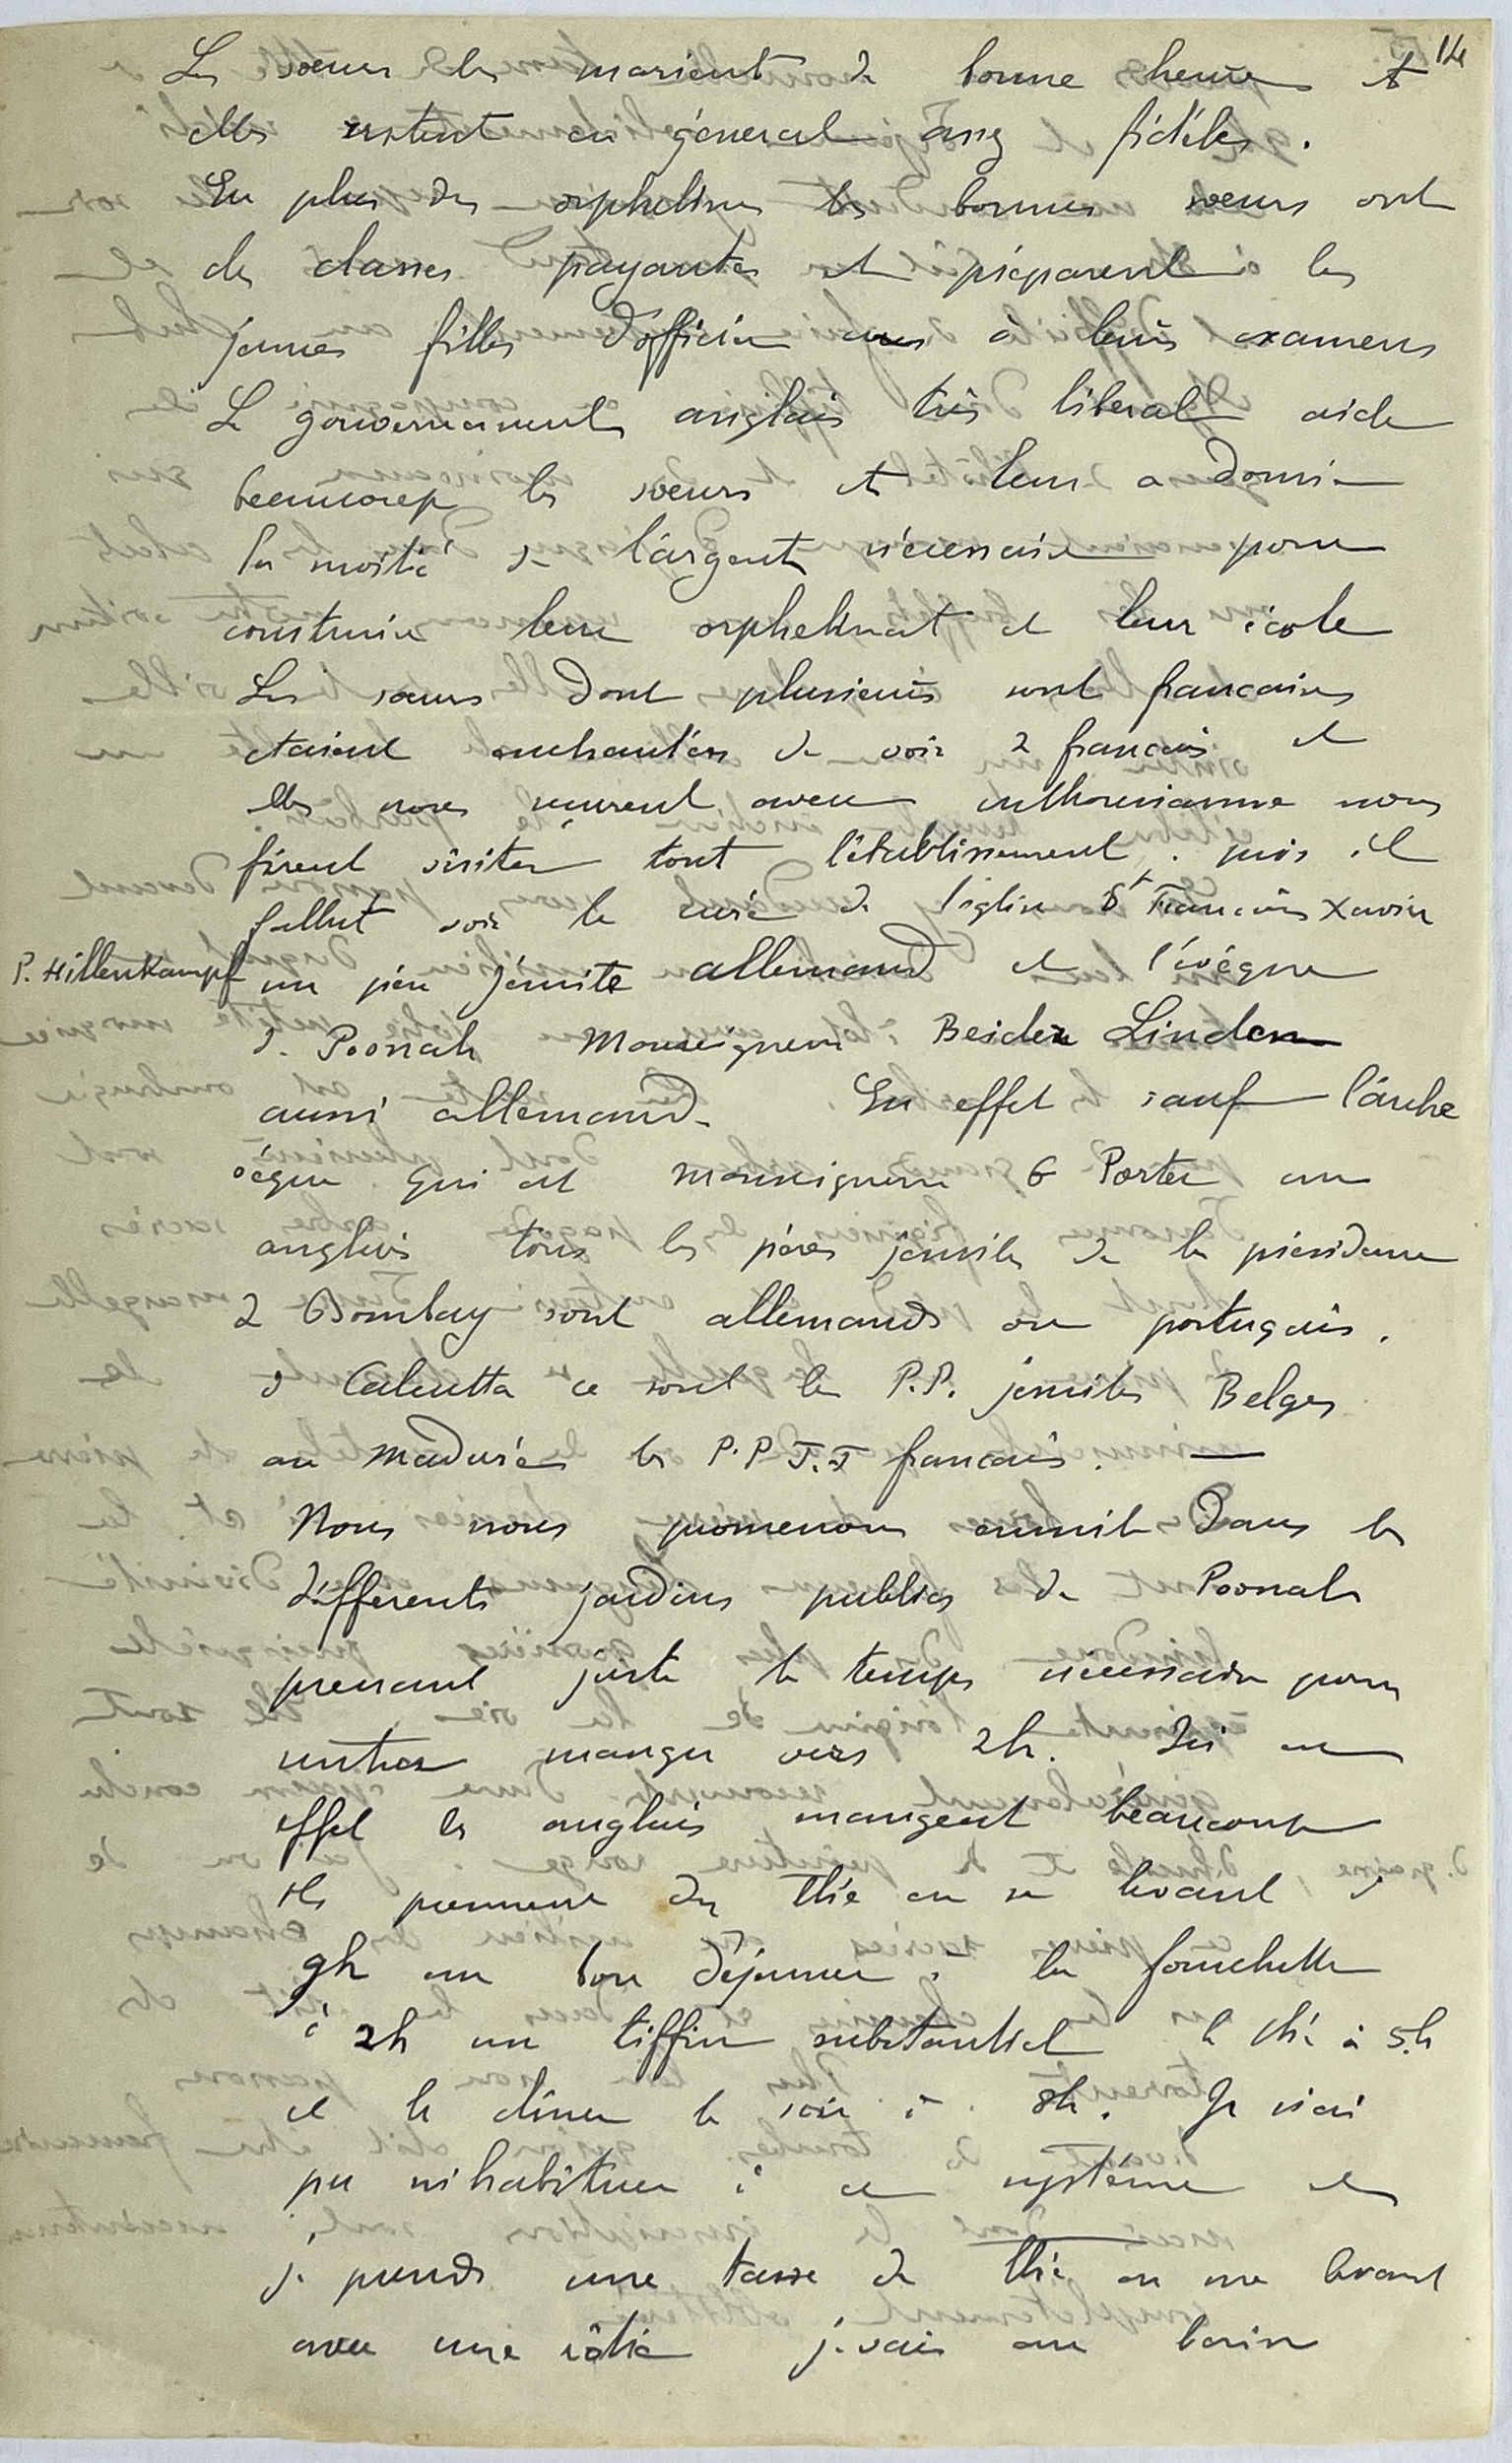 14
Les soeurs les marient de bonne heure et
elles restent en général assez fidèles.
En plus des orphelines les bonnes soeurs ont
des classes payantes et préparent les
jeunes filles d'officiers à leurs examens
Le gouvernement anglais très libéral aide
beaucoup les soeurs et leur a donné
la moitié de l'argent nécessaire pour
construire leur orphelinat et leur école
Les soeurs dont plusieurs sont francaises
étaient enchantées de voir 2 francais et
elles nous reçurent avec enthousiasme nous
firent visiter tout l'établissement. puis il
fallut voir le curé de l'église St Francois Xavier
P. Hillenkampf un père Jésuite allemand et l'évêque
de Poonah Monseigneur Beider Linden
aussi allemand. En effet sauf l'arche
vêque qui est Monseigneur G Porter un
anglais tous les pères jésuites de la présidence
de Bombay sont allemands ou portugais.
à Calcutta ce sont les P.P. jésuites Belges
au Maduré les P.P J.J francais. —
Nous nous promenons ensuite dans les
différents jardins publics de Poonah
prenant juste le temps nécessaire pour
rentrer manger vers 2h. Ici en
effet les anglais mangent beaucoup
ils prennent du thé en se levant à
9h un bon déjeuner à la fourchette
à 2h un tiffin substantiel le thé à 5h
et le dîner le soir à 8h. Je n'ai
pu m'habituer à ce système et
je prends une tasse de thé en me levant
avec une rôtie je vais au bain